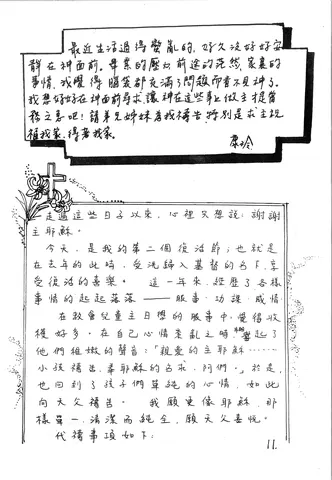 最近生活過得蠻亂的, 好久沒好好安
靜在神面前。畢業的壓力前途的茫然, 家裏的
事情, 我覺得腦袋都充滿了問題而看不見神了。
我想好好在神面前尋求讓神在這些事上做主提醒
務之急吧！請弟兄姊妹為我禱告, 特別是求主說
走過這些日子以來, 心裡只想說：謝謝
主耶穌。
今天, 是我的第二個復活節；也就是
在去年的此時, 受洗歸入基督的名下, 享
受復活的喜樂。 這一年來, 經歷了各樣
事情的起起落落——服事、功課、感情
在教會兒童主日學的服事中, 覺得收
穫好多。在自己心情紊亂之時, 響起了
他們細嫩的聲音：「親愛的主耶穌……
小孩禱告, 奉耶穌的名求, 阿們。」於是,
也回到了孩子們單純的心情, 如此
向天父禱告。 我願更像耶穌, 那
樣單一、清潔而純全, 願天父喜悅。
代禱事項如下：
11.